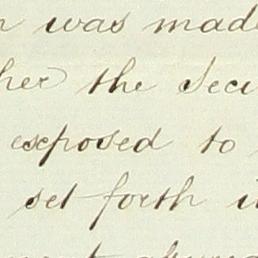 n was made
her the Secu
exposed to
set forth i